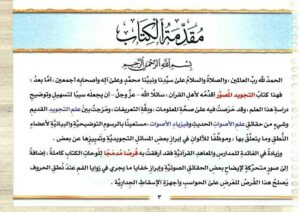 مقدمة الكتاب
بسم الله الرحمن الرحيم
الحمد لله رب العالمين، والصلاة والسلام على سيدنا ونبينا محمد وعلى آله وأصحابه أجمعين، أما بعد:
فهذا كتاب التجويد المصور أقدمه لأهل القرآن، سائلاً الله - عز وجل - أن يجعله سببًا لتسهيل وتوضيح
دراسة هذا العلم، وقد حرصت فيه على صحة المعلومات، ودقة التعريفات، ومزجت بين علم التجويد القديم
وشيء من حقائق علم الأصوات الحديث وفيزياء الأصوات، مستعينًا بالرسوم التوضيحية والبيانية لأعضاء
النطق وما يتعلق بها، وموظفًا للألوان في إبراز بعض المسائل التجويدية وتمييزها عن بعض.
وزيادة في الفائدة للمدارس والمعاهد القرآنية فقد أرفقت به قرصًا مدمجًا للوحات الكتاب كاملة، إضافة
إلى صور متحركة لإيضاح بعض الحقائق الصوتية وإبراز خفايا ما يجري في زوايا الفم عند نطق الحروف
يصلح هذا القرص للعرض على الحواسب وأجهزة الإسقاط الجدارية.
٣